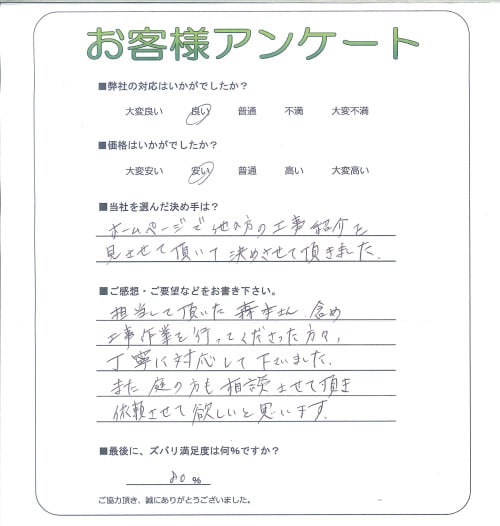 お客様アンケート
■弊社の対応はいかがでしたか？
大変良い 良い 普通 不満 大変不満
■価格はいかがでしたか？
大変安い 安い 普通 高い 大変高い
■当社を選んだ決め手は？
ホームページで他の方の工事紹介を
見させて頂いて決めさせて頂きました.
■ご感想・ご要望などをお書き下さい。
担当して頂いた森本さん.含め
工事作業を行ってくださった方々,
丁寧に対応して下いました.
また庭の方も相談させて頂き
依頼させて欲しいと思います.
■最後に、ズバリ満足度は何%ですか？
80 %
ご協力頂き、誠にありがとうございました。